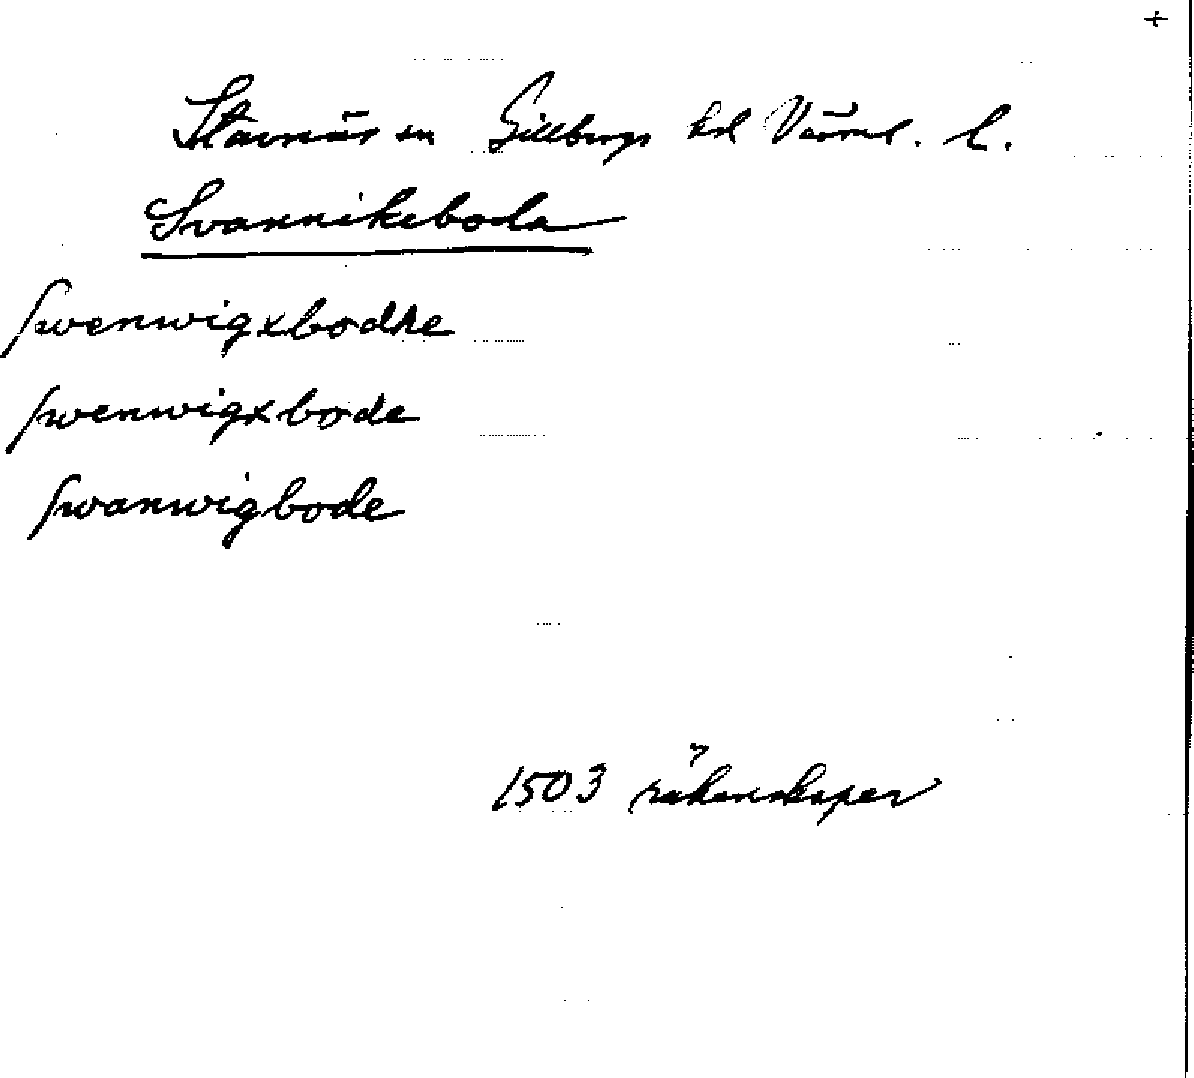 +
Stavnäs sn Gillbergs hd Värml. l.
Svannikeboda
swenwigxbodhe
swenwigxbode
swanwigbode
1503 räkenskaper